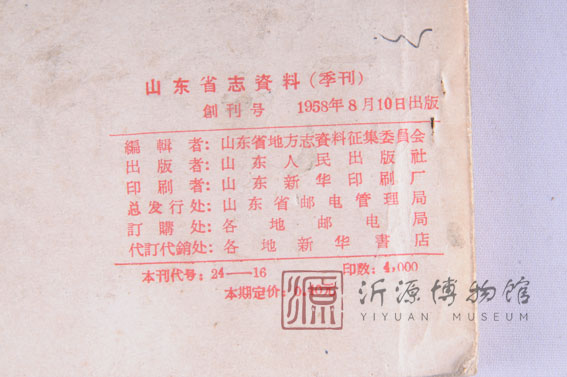 山东省志資料(季刊)
創刊号 1958年8月10日出版
編輯者:山东省地方志資料征集委員会
出版者:山东人民出版社
印刷者:山东新华印刷厂
总发行处:山东省邮电管理局
訂購处:各地邮电局
代訂代銷处:各地新华書店
本刊代号:24—16 印数:4,000
本期定价:0.40元
源 沂源博物馆
YIYUAN MUSEUM